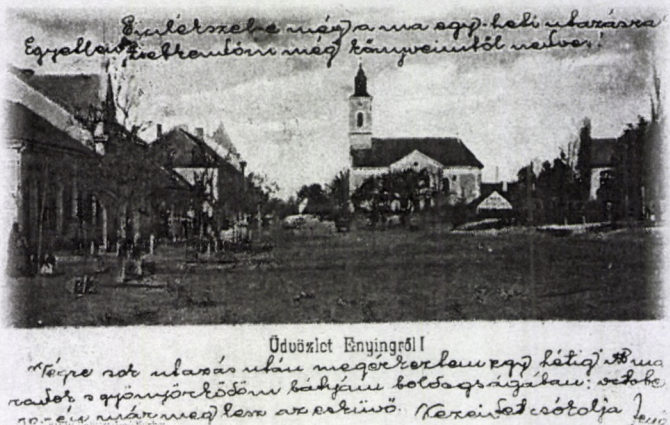 Emlékszel-e még a ma egy heti utazásra
Egyetlen
még könyveimtől nedve!
Üdvözlet Enyingről!
Végre sok utazás után megérkeztem egy hétig itt ma
radok s gyönyörködöm bátyám boldogságában; oktobe
10-én már meg lesz az esküvő. Kezeidet csókolja Jenő